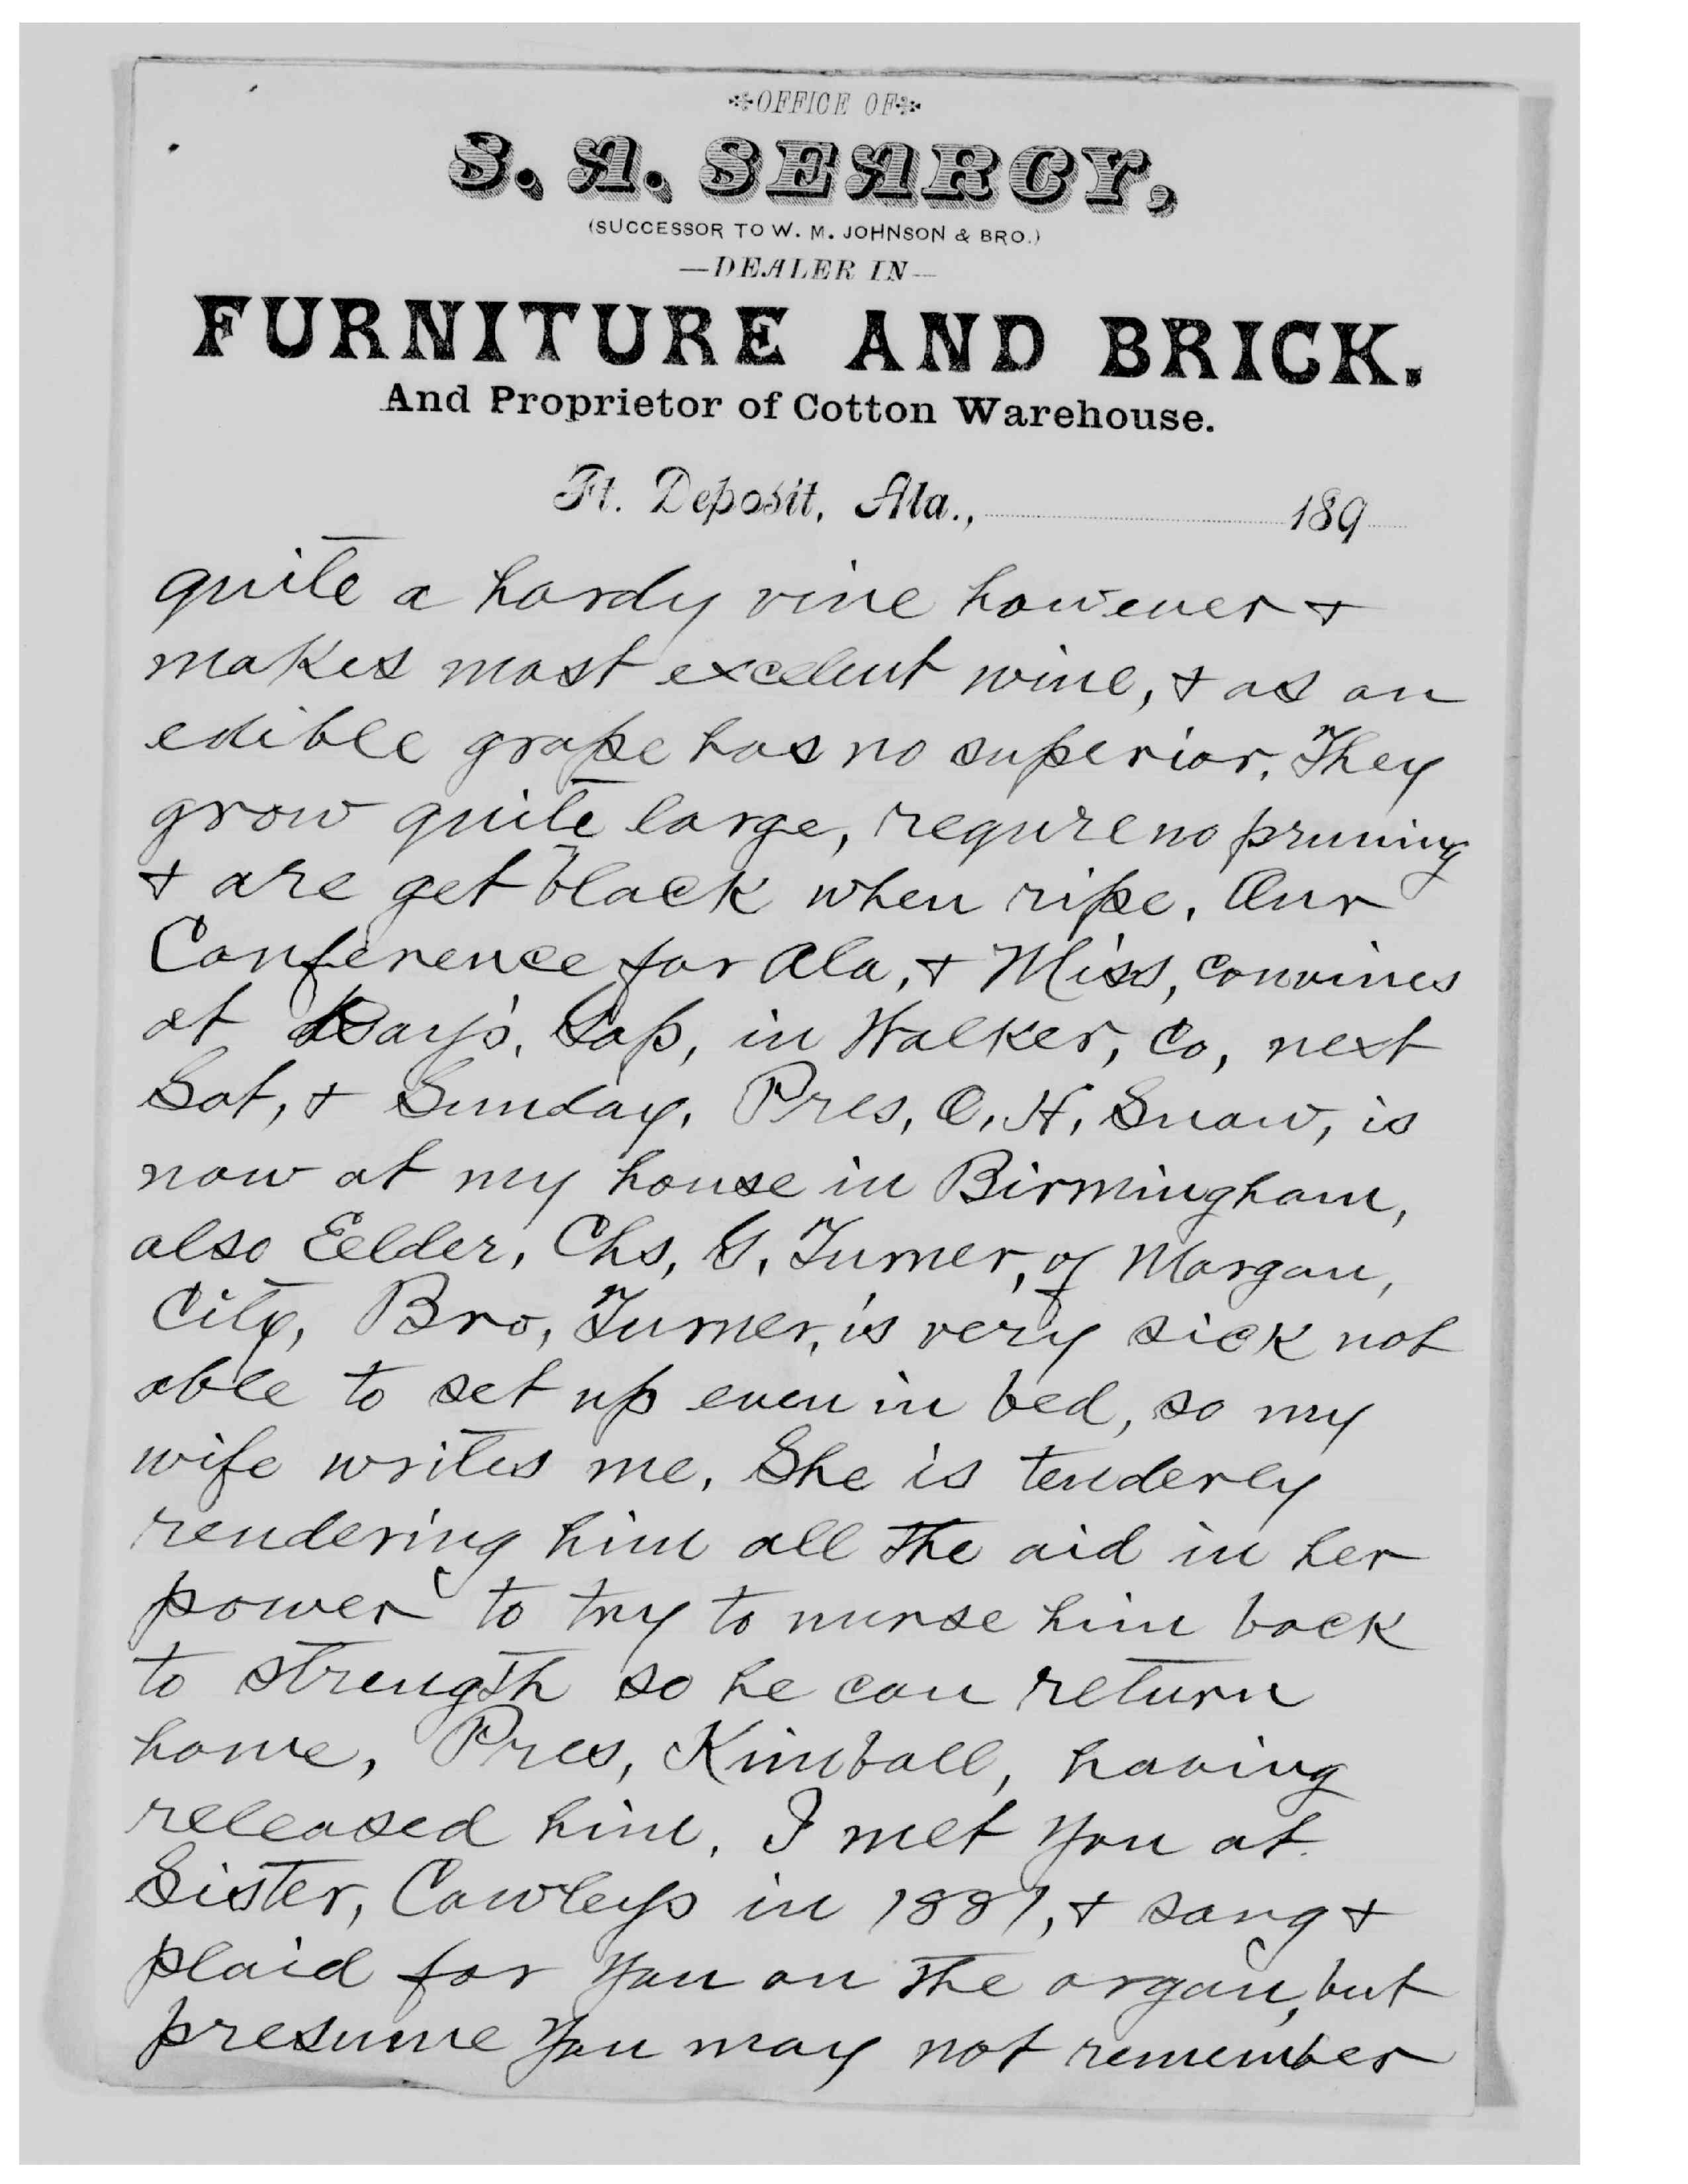 OFFICE OF
S. A. SEARCY,
(SUCCESSOR TO W. M. JOHNSON & BRO.)
—DEALER IN—
FURNITURE AND BRICK.
And Proprietor of Cotton Warehouse.
Ft. Deposit, Ala., 189
quite a hardy vine however &
makes most excelent wine, & as an
edible grape has no superior. They
grow quite large, requre no pruning
& are get black when ripe. Our
Conference for Ala, & Miss, convines
at Day's, Gap, in Walker, Co, next
Sat, & Sunday. Pres, O. H, Snow, is
now at my house in Birmingham,
also Eelder, Chs, G. Turner, of Morgan,
City, Bro, Turner, is very sick not
able to set up even in bed, so my
wife writes me. She is tenderly
rendering him all the aid in her
power to try to nurse him back
to strength so he can return
home, Pres, Kimball, having
released him. I met you at
Sister, Cowleys in 1887, & sang &
plaid for you on the organ, but
presume you may not remember